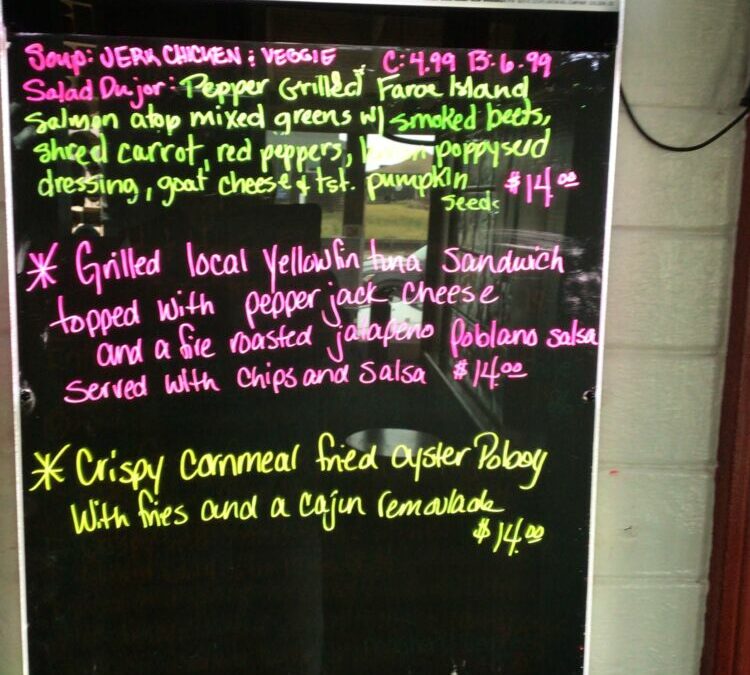 Soup: JERK CHICKEN & VEGGIE C: 4.99 B: 6.99
Salad Dujor: Pepper Grilled Faroe Island
Salmon atop mixed greens w/ smoked beets,
shred carrot, red peppers, poppyseed
dressing, goat cheese & tst. pumpkin $14.00
seeds
* Grilled local Yellowfin tuna sandwich
topped with pepper jack cheese
and a fire roasted jalapeno Poblano salsa
Served with chips and salsa $14.00
* Crispy Cornmeal fried oyster Poboy
With fries and a cajun remoulade
$14.00